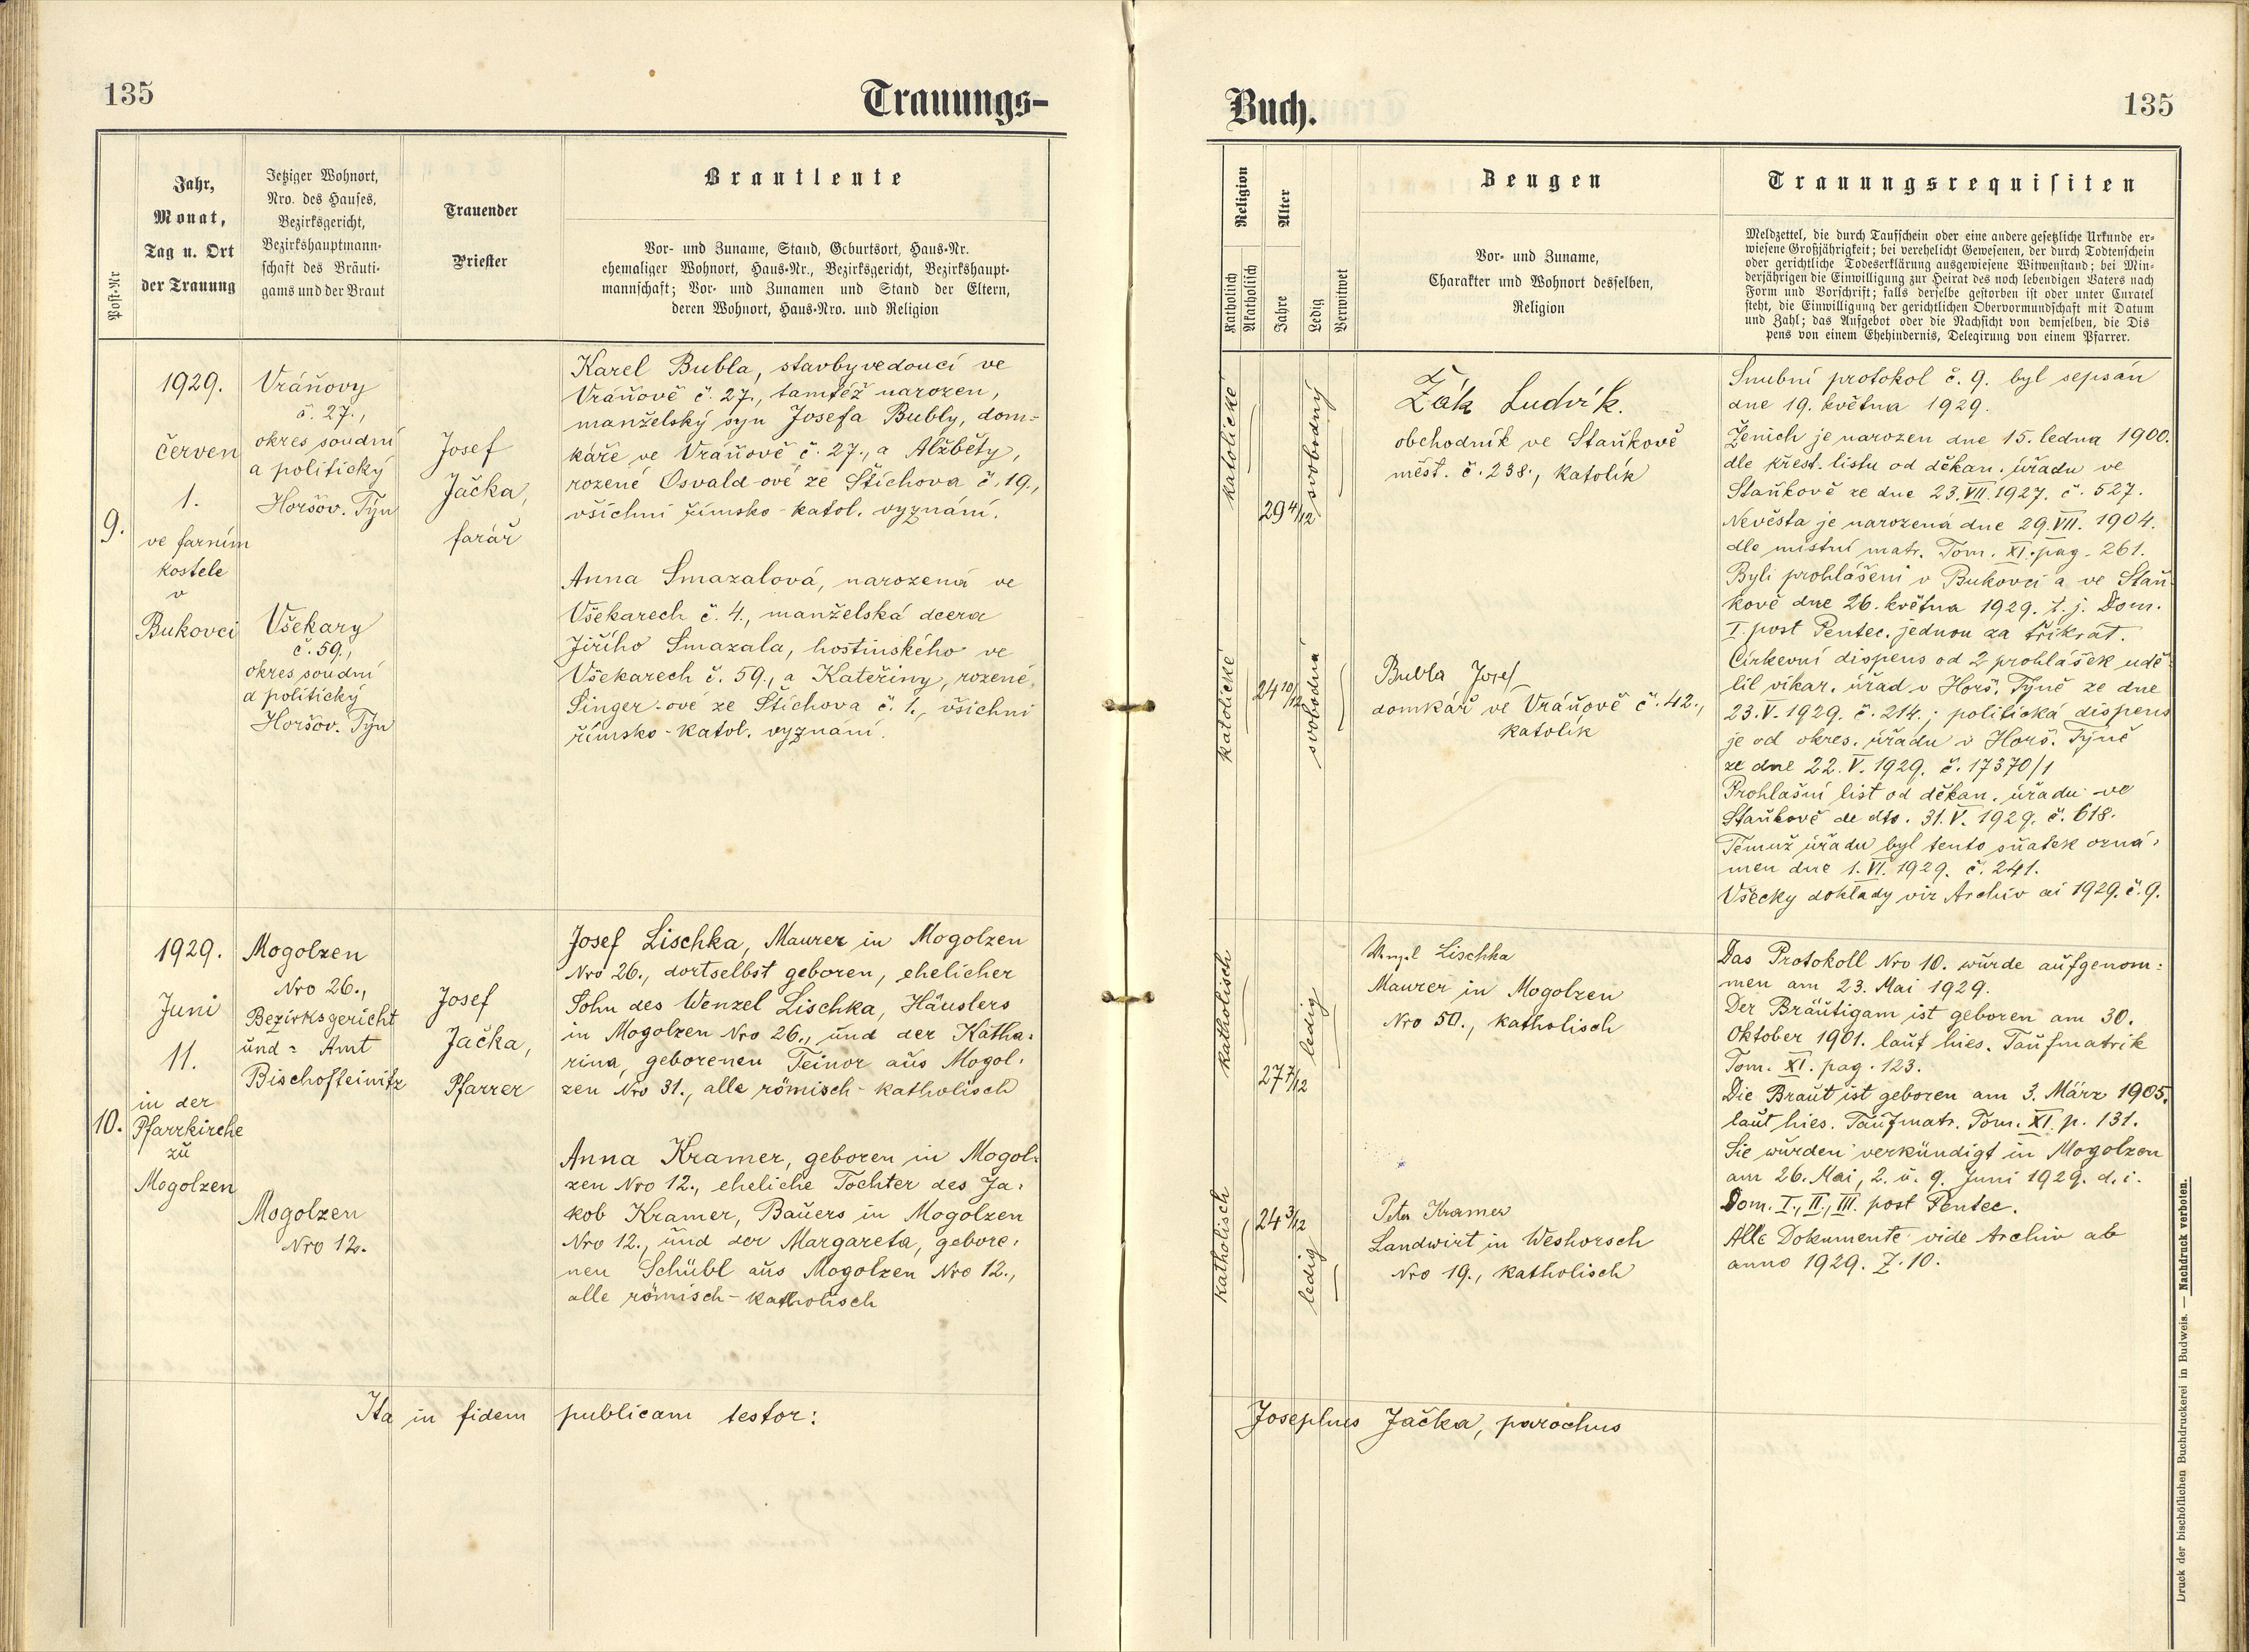 135
Trauungs-
Post-Nr
Jahr,
Monat,
Tag u. Ort
der Trauung
Jetziger Wohnort,
Nro. des Hauses,
Bezirksgericht,
Bezirkshauptmann-
schaft des Bräuti-
gams und der Braut
Trauender
Priester
Brautleute
Vor- und Zuname, Stand, Geburtsort, Haus-Nr.
ehemaliger Wohnort, Haus-Nr., Bezirksgericht, Bezirkshaupt-
mannschaft; Vor- und Zunamen und Stand der Eltern,
deren Wohnort, Haus-Nro. und Religion
9.
1929.
červen
1.
ve farním
kostele
v
Bukovci
Vráňovy
č. 27.,
okres soudní
a politický
Horšov. Týn
Všekary
č. 59.,
okres soudní
a politický
Horšov. Týn
Josef
Jačka,
farář
Karel Bubla, stavbyvedoucí ve
Vráňově č. 27., tamtéž narozen,
manželský syn Josefa Bubly, dom-
káře ve Vráňově č. 27., a Alžběty,
rozené Osvald-ové ze Štichova č. 19.,
všichni římsko-katol. vyznání.
Anna Smazalová, narozená ve
Všekarech č. 4., manželská dcera
Jiřího Smazala, hostinského ve
Všekarech č. 59., a Kateřiny, rozené
Singer-ové ze Štichova č. 1., všichni
římsko-katol. vyznání.
10.
1929.
Juni
11.
in der
Pfarrkirche
zu
Mogolzen
Mogolzen
Nro 26.,
Bezirksgericht
und = Amt
Bischofteinitz
Mogolzen
Nro 12.
Josef
Jačka,
Pfarrer
Josef Lischka, Maurer in Mogolzen
Nro 26., dortselbst geboren, ehelicher
Sohn des Wenzel Lischka, Häuslers
in Mogolzen Nro 26., und der Katha-
rina, geborenen Teinor aus Mogol-
zen Nro 31., alle römisch-katholisch
Anna Kramer, geboren in Mogol-
zen Nro 12., eheliche Tochter des Ja-
kob Kramer, Bauers in Mogolzen
Nro 12., und der Margareta, gebore-
nen Schübl aus Mogolzen Nro 12.,
alle römisch-katholisch
Ita in fidem publicam testor:
Buch.
135
Religion
Katholisch
Akatholisch
Alter
Jahre
Ledig
Verwitwet
Zeugen
Vor- und Zuname,
Charakter und Wohnort desselben,
Religion
Trauungsrequisiten
Meldzettel, die durch Taufschein oder eine andere gesetzliche Urkunde er-
wiesene Großjährigkeit; bei verehelicht Gewesenen, der durch Todtenschein
oder gerichtliche Todeserklärung ausgewiesene Witwenstand; bei Min-
derjährigen die Einwilligung zur Heirat des noch lebendigen Vaters nach
Form und Vorschrift; falls derselbe gestorben ist oder unter Curatel
steht, die Einwilligung der gerichtlichen Obervormundschaft mit Datum
und Zahl; das Aufgebot oder die Nachsicht von demselben, die Dis
pens von einem Ehehindernis, Delegirung von einem Pfarrer.
katolické
29 4/12
svobodný
Žák Ludvík.
obchodník ve Staňkově
měst. č. 238., katolík
katolické
24 10/12
svobodná
Bubla Josef
domkář ve Vráňově č. 42.,
katolík
Snubní protokol č. 9. byl sepsán
dne 19. května 1929.
Ženich je narozen dne 15. ledna 1900.
dle křest. listu od děkan. úřadu ve
Staňkově ze dne 23. VII. 1927. č. 527.
Nevěsta je narozená dne 29. VII. 1904.
dle místní matr. Tom. XI. pag. 261.
Byli prohlášeni v Bukovci a ve Staň-
kově dne 26. května 1929. t. j. Dom.
I. post Pentec. jednou za třikrát.
Církevní dispens od 2 prohlášek udě-
lil vikar. úřad v Horš. Týně ze dne
23. V. 1929. č. 214.; politická dispens
je od okres. úřadu v Horš. Týně
ze dne 22. V. 1929. č. 17370/1
Prohlašní list od děkan. úřadu ve
Staňkově de dto. 31. V. 1929. č. 618.
Témuž úřadu byl tento sňatek ozná-
men dne 1. VI. 1929. č. 241.
Všecky doklady viz Archiv ai 1929. č. 9.
katholisch
27 7/12
ledig
Wenzel Lischka
Maurer in Mogolzen
Nro 50., katholisch
katholisch
24 3/12
ledig
Peter Kramer
Landwirt in Weshorsch
Nro 19., katholisch
Das Protokoll Nro 10. wurde aufgenom-
men am 23. Mai 1929.
Der Bräutigam ist geboren am 30.
Oktober 1901. laut hies. Taufmatrik
Tom. XI. pag. 123.
Die Braut ist geboren am 3. März 1905.
laut hies. Taufmatr. Tom. XI. p. 131.
Sie wurden verkündigt in Mogolzen
am 26. Mai, 2. u. 9. Juni 1929. d. i.
Dom. I., II., III. post Pentec.
Alle Dokumente vide Archiv ab
anno 1929. Z. 10.
Josephus Jačka, parochus
Druck der bischöflichen Buchdruckerei in Budweis. — Nachdruck verboten.